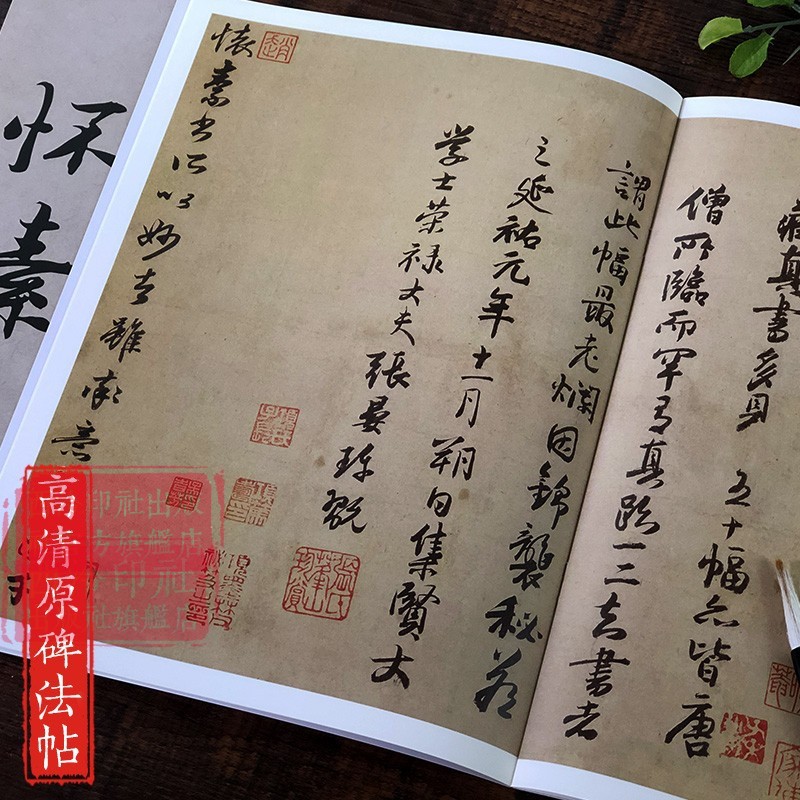 藏真書多見五十幅亦皆唐
僧所臨而罕有真跡一二知書者
謂此幅最老爛因錦襲秘藏
之延祐元年十一月朔日集賢大
学士荣禄大夫張晏珍玩
懐素書所以妙者雖率意
怀素
高清原碑法帖